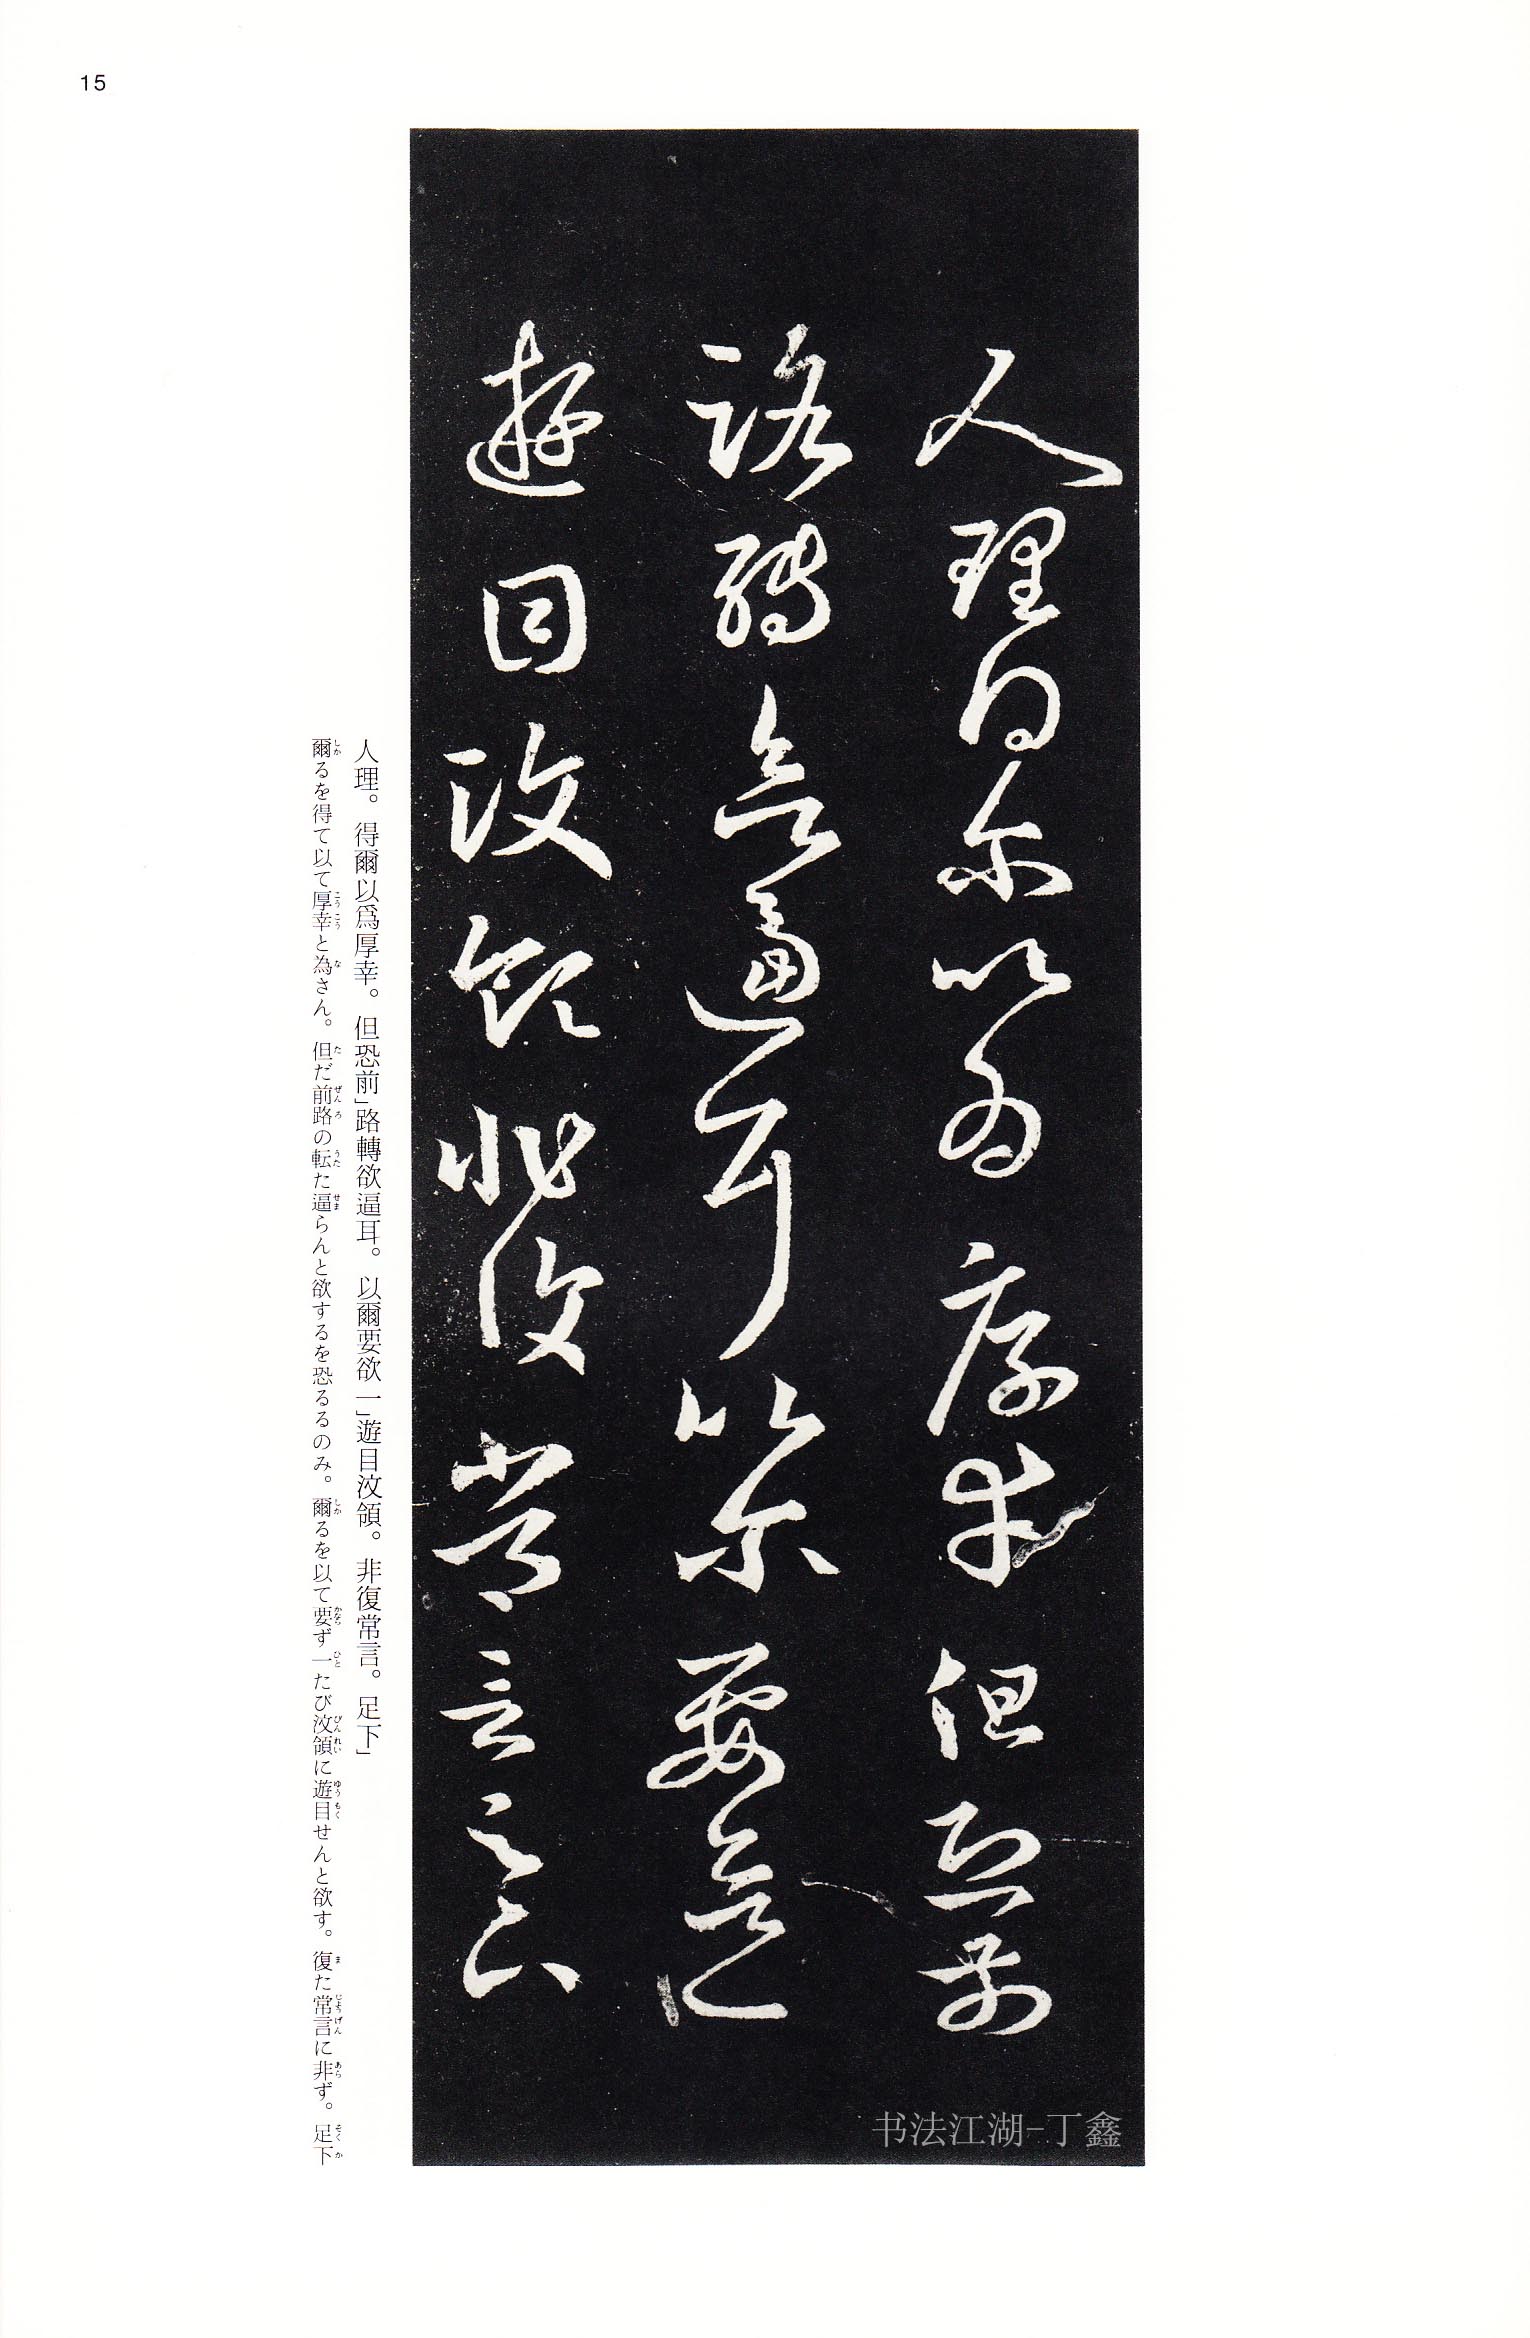 15
人理得尔以為厚幸但恐前
路轉欲逼耳以尔要欲一
遊目汶領非復常言足下
人理。得爾以爲厚幸。但恐前」路轉欲逼耳。以爾要欲一」遊目汶領。非復常言。足下」
爾るを得て以て厚幸と為さん。但だ前路の転た逼らんと欲するを恐るるのみ。爾るを以て要ず一たび汶領に遊目せんと欲す。復た常言に非ず。足下
书法江湖-丁鑫